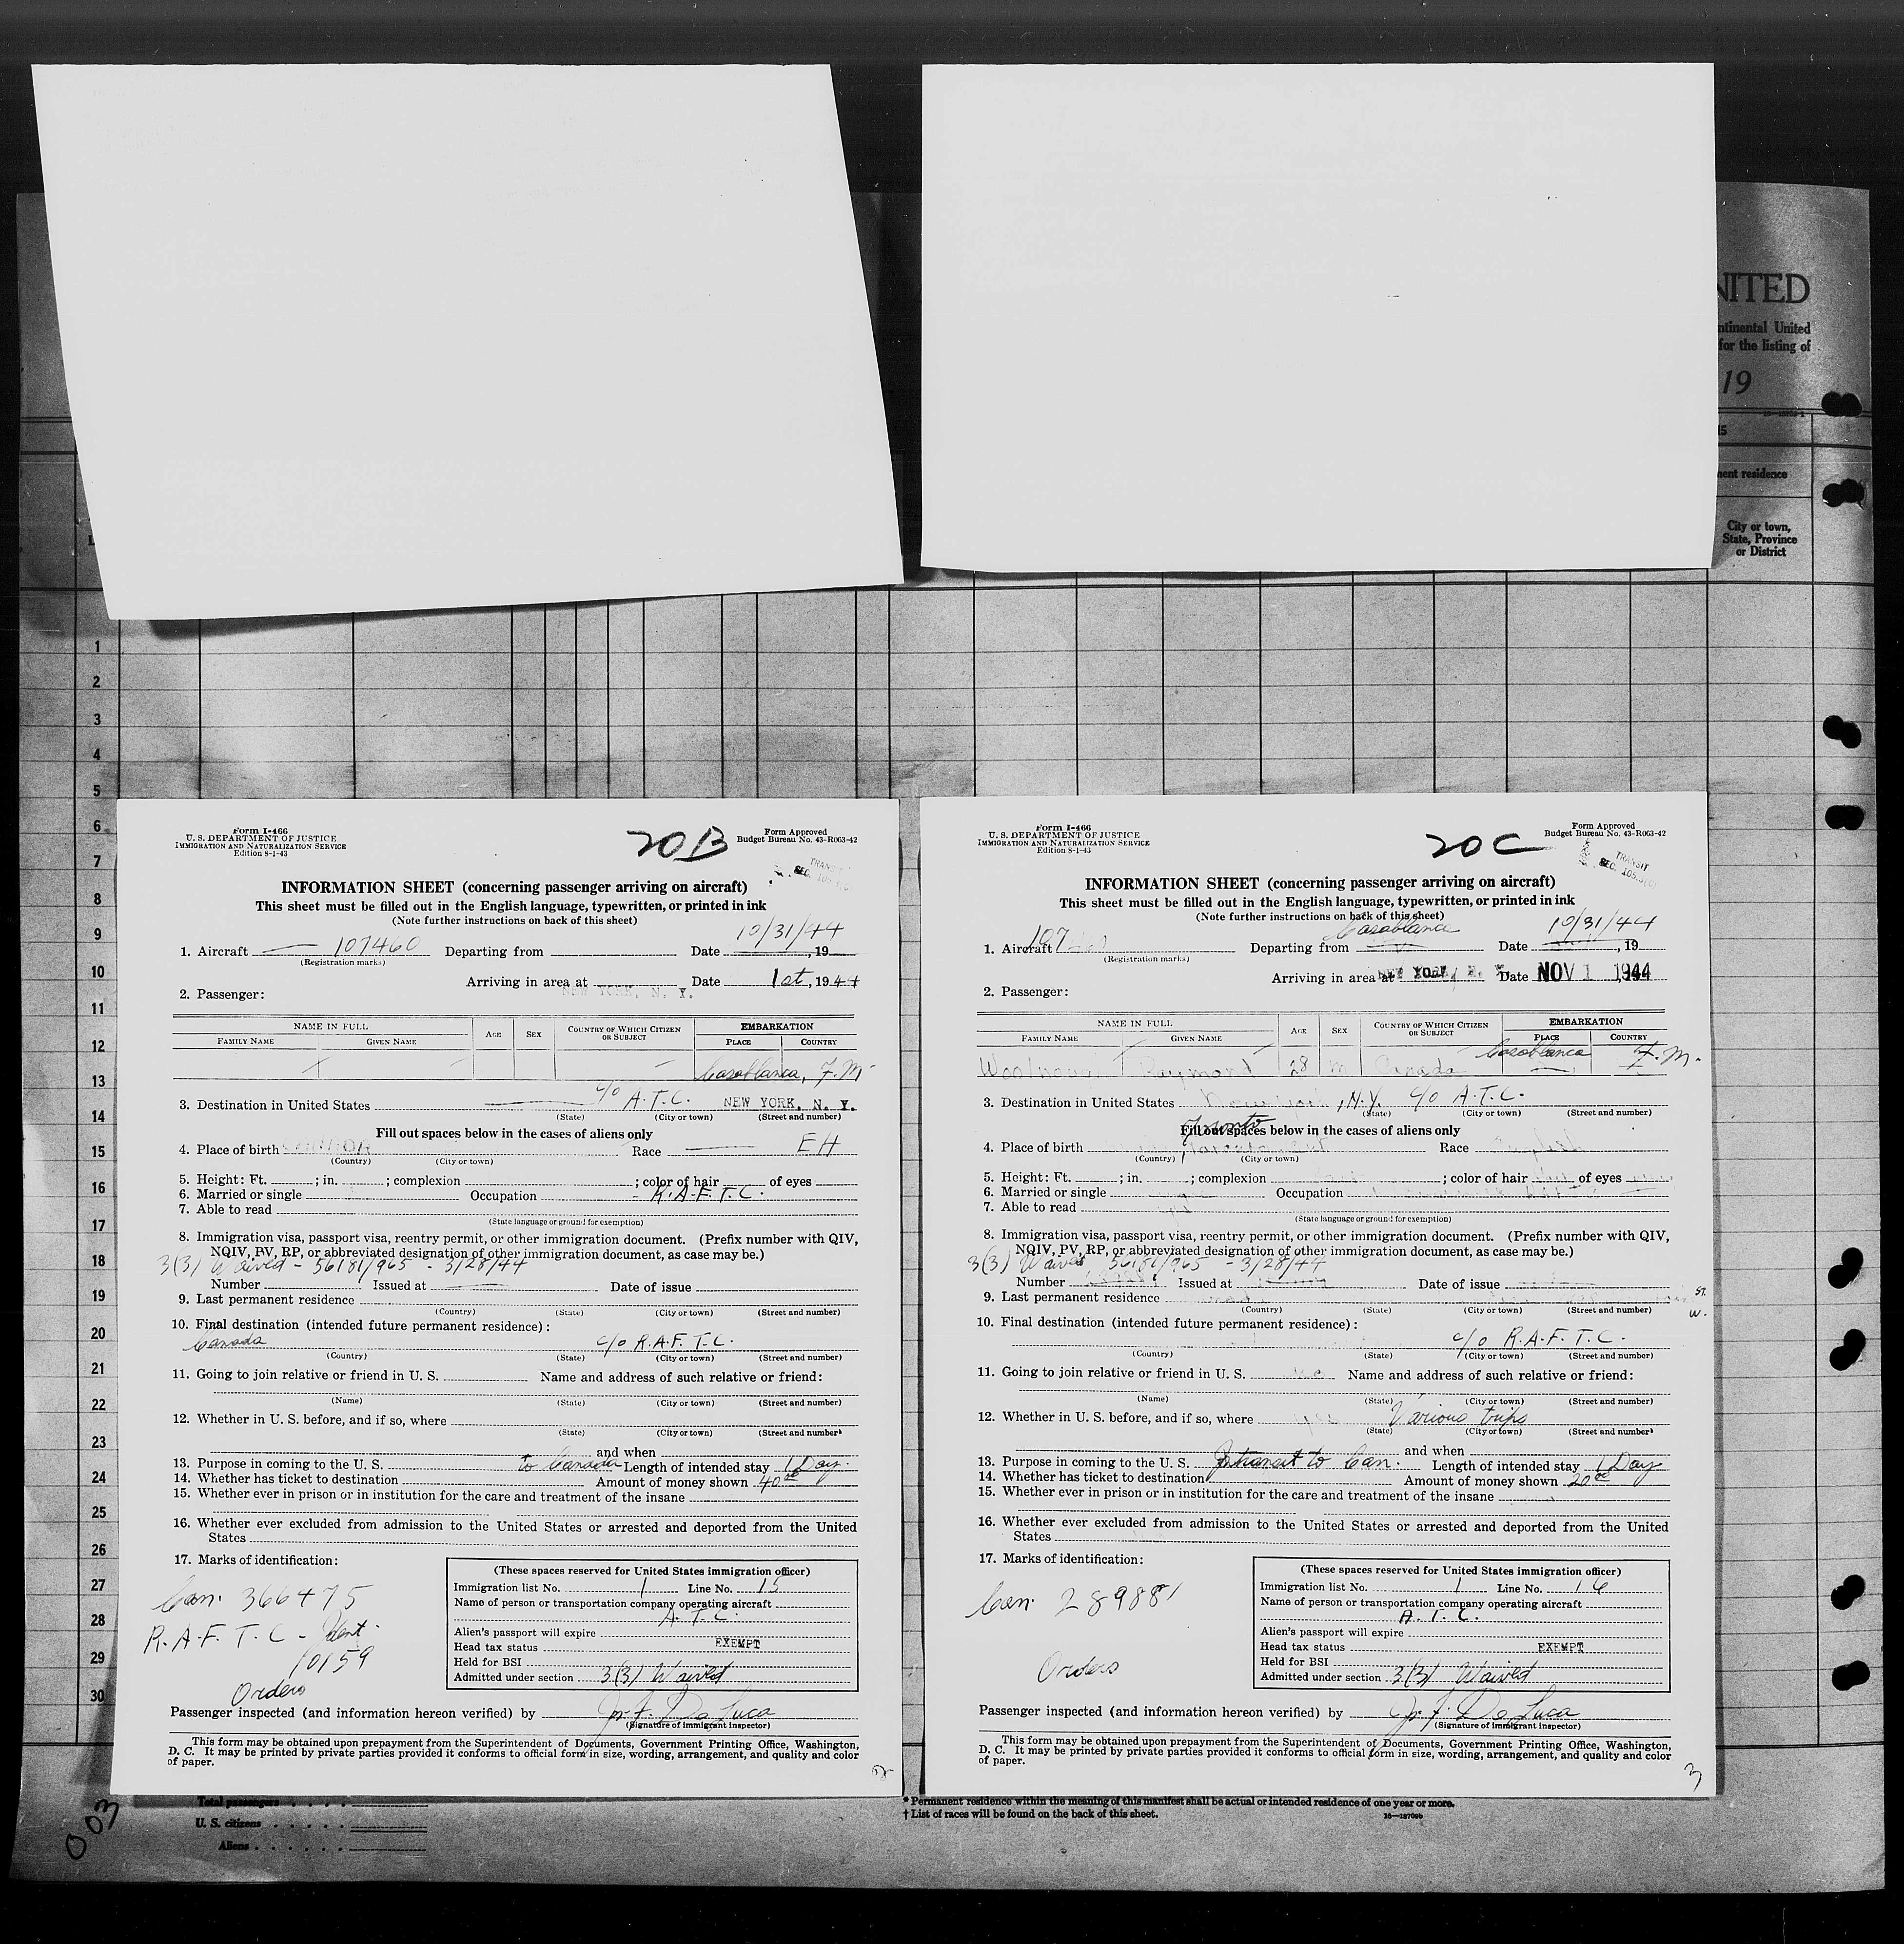 NITED
ntinental United
for the listing of
19
15
nent residence
City or town,
State, Province
or District
1
2
3
4
5
6
7
8
9
10
11
12
13
14
15
16
17
18
19
20
21
22
23
24
25
26
27
28
29
30
Form I-466
U. S. DEPARTMENT OF JUSTICE
IMMIGRATION AND NATURALIZATION SERVICE
Edition 8-1-43
20B
Form Approved
Budget Bureau No. 43-R063-42
TRANSIT
SEC.
INFORMATION SHEET (concerning passenger arriving on aircraft)
This sheet must be filled out in the English language, typewritten, or printed in ink
(Note further instructions on back of this sheet)
10/31/44
1. Aircraft 107460 Departing from Date , 19
(Registration marks)
Arriving in area at NEW YORK, N. Y. Date 1st, 1944
2. Passenger:
NAME IN FULL AGE SEX COUNTRY OF WHICH CITIZEN OR SUBJECT EMBARKATION
FAMILY NAME GIVEN NAME PLACE COUNTRY
Casablanca, F.M.
3. Destination in United States c/o A.T.C. NEW YORK, N. Y.
(State) (City or town) (Street and number)
Fill out spaces below in the cases of aliens only
4. Place of birth CANADA Race EH
(Country) (City or town)
5. Height: Ft. ; in. ; complexion ; color of hair of eyes
6. Married or single Occupation - R.A.F.T.C.
7. Able to read
(State language or ground for exemption)
8. Immigration visa, passport visa, reentry permit, or other immigration document. (Prefix number with QIV,
NQIV, PV, RP, or abbreviated designation of other immigration document, as case may be.)
3(3) Waived - 56181/965 - 3/28/44
Number Issued at Date of issue
9. Last permanent residence
(Country) (State) (City or town) (Street and number)
10. Final destination (intended future permanent residence):
Canada c/o R.A.F.T.C.
(Country) (State) (City or town) (Street and number)
11. Going to join relative or friend in U. S. Name and address of such relative or friend:
(Name) (State) (City or town) (Street and number)
12. Whether in U. S. before, and if so, where
(State) (City or town) (Street and number)
and when
13. Purpose in coming to the U. S. to Canada Length of intended stay 1 Day.
14. Whether has ticket to destination Amount of money shown 40 00
15. Whether ever in prison or in institution for the care and treatment of the insane
16. Whether ever excluded from admission to the United States or arrested and deported from the United
States
17. Marks of identification:
Can. 366475
R.A.F.T.C - Ident.
10159
Orders
(These spaces reserved for United States immigration officer)
Immigration list No. 1 Line No. 15
Name of person or transportation company operating aircraft
A. T. C.
Alien's passport will expire
Head tax status EXEMPT
Held for BSI
Admitted under section 3(3) Waived
Passenger inspected (and information hereon verified) by J. F. De Luca
(Signature of immigrant inspector)
This form may be obtained upon prepayment from the Superintendent of Documents, Government Printing Office, Washington,
D. C. It may be printed by private parties provided it conforms to official form in size, wording, arrangement, and quality and color
of paper.
2
Form I-466
U. S. DEPARTMENT OF JUSTICE
IMMIGRATION AND NATURALIZATION SERVICE
Edition 8-1-43
20C
Form Approved
Budget Bureau No. 43-R063-42
TRANSIT
SEC.
INFORMATION SHEET (concerning passenger arriving on aircraft)
This sheet must be filled out in the English language, typewritten, or printed in ink
(Note further instructions on back of this sheet)
Casablanca 10/31/44
1. Aircraft 107460 Departing from Date , 19
(Registration marks)
Arriving in area at NEW YORK, N. Y. Date NOV 1 1944
2. Passenger:
NAME IN FULL AGE SEX COUNTRY OF WHICH CITIZEN OR SUBJECT EMBARKATION
FAMILY NAME GIVEN NAME PLACE COUNTRY
Raymond 28 m Canada Casablanca F.M.
3. Destination in United States New York, N.Y. c/o A.T.C.
(State) (City or town) (Street and number)
Toronto
Fill out spaces below in the cases of aliens only
4. Place of birth Race English
(Country) (City or town)
5. Height: Ft. ; in. ; complexion ; color of hair of eyes
6. Married or single Occupation
7. Able to read
(State language or ground for exemption)
8. Immigration visa, passport visa, reentry permit, or other immigration document. (Prefix number with QIV,
NQIV, PV, RP, or abbreviated designation of other immigration document, as case may be.)
3(3) Waived 56181/965 - 3/28/44
Number Issued at Date of issue
9. Last permanent residence St. W.
(Country) (State) (City or town) (Street and number)
10. Final destination (intended future permanent residence):
c/o R.A.F.T.C.
(Country) (State) (City or town) (Street and number)
11. Going to join relative or friend in U. S. Name and address of such relative or friend:
(Name) (State) (City or town) (Street and number)
12. Whether in U. S. before, and if so, where yes Various trips
(State) (City or town) (Street and number)
and when
13. Purpose in coming to the U. S. In transit to Can. Length of intended stay 1 Day
14. Whether has ticket to destination Amount of money shown 20 00
15. Whether ever in prison or in institution for the care and treatment of the insane
16. Whether ever excluded from admission to the United States or arrested and deported from the United
States
17. Marks of identification:
Can. 289881
Orders
(These spaces reserved for United States immigration officer)
Immigration list No. 1 Line No. 16
Name of person or transportation company operating aircraft
A. T. C.
Alien's passport will expire
Head tax status EXEMPT
Held for BSI
Admitted under section 3(3) Waived
Passenger inspected (and information hereon verified) by J. F. De Luca
(Signature of immigrant inspector)
This form may be obtained upon prepayment from the Superintendent of Documents, Government Printing Office, Washington,
D. C. It may be printed by private parties provided it conforms to official form in size, wording, arrangement, and quality and color
of paper.
3
003
Total passengers
U. S. citizens
Aliens
* Permanent residence within the meaning of this manifest shall be actual or intended residence of one year or more.
† List of races will be found on the back of this sheet.